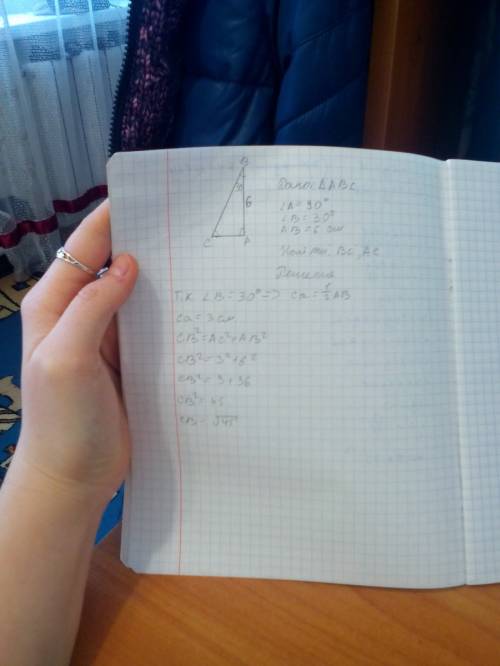 B
30
6
C A
Дано: ΔABC
∠A = 90°
∠B = 30°
AB = 6 см
Найти: BC, AC
Решение
Т.К. ∠B = 30° => CA = 1/2 AB
CA = 3 см
CB² = AC² + AB²
CB² = 3² + 6²
CB² = 9 + 36
CB² = 45
CB = √45